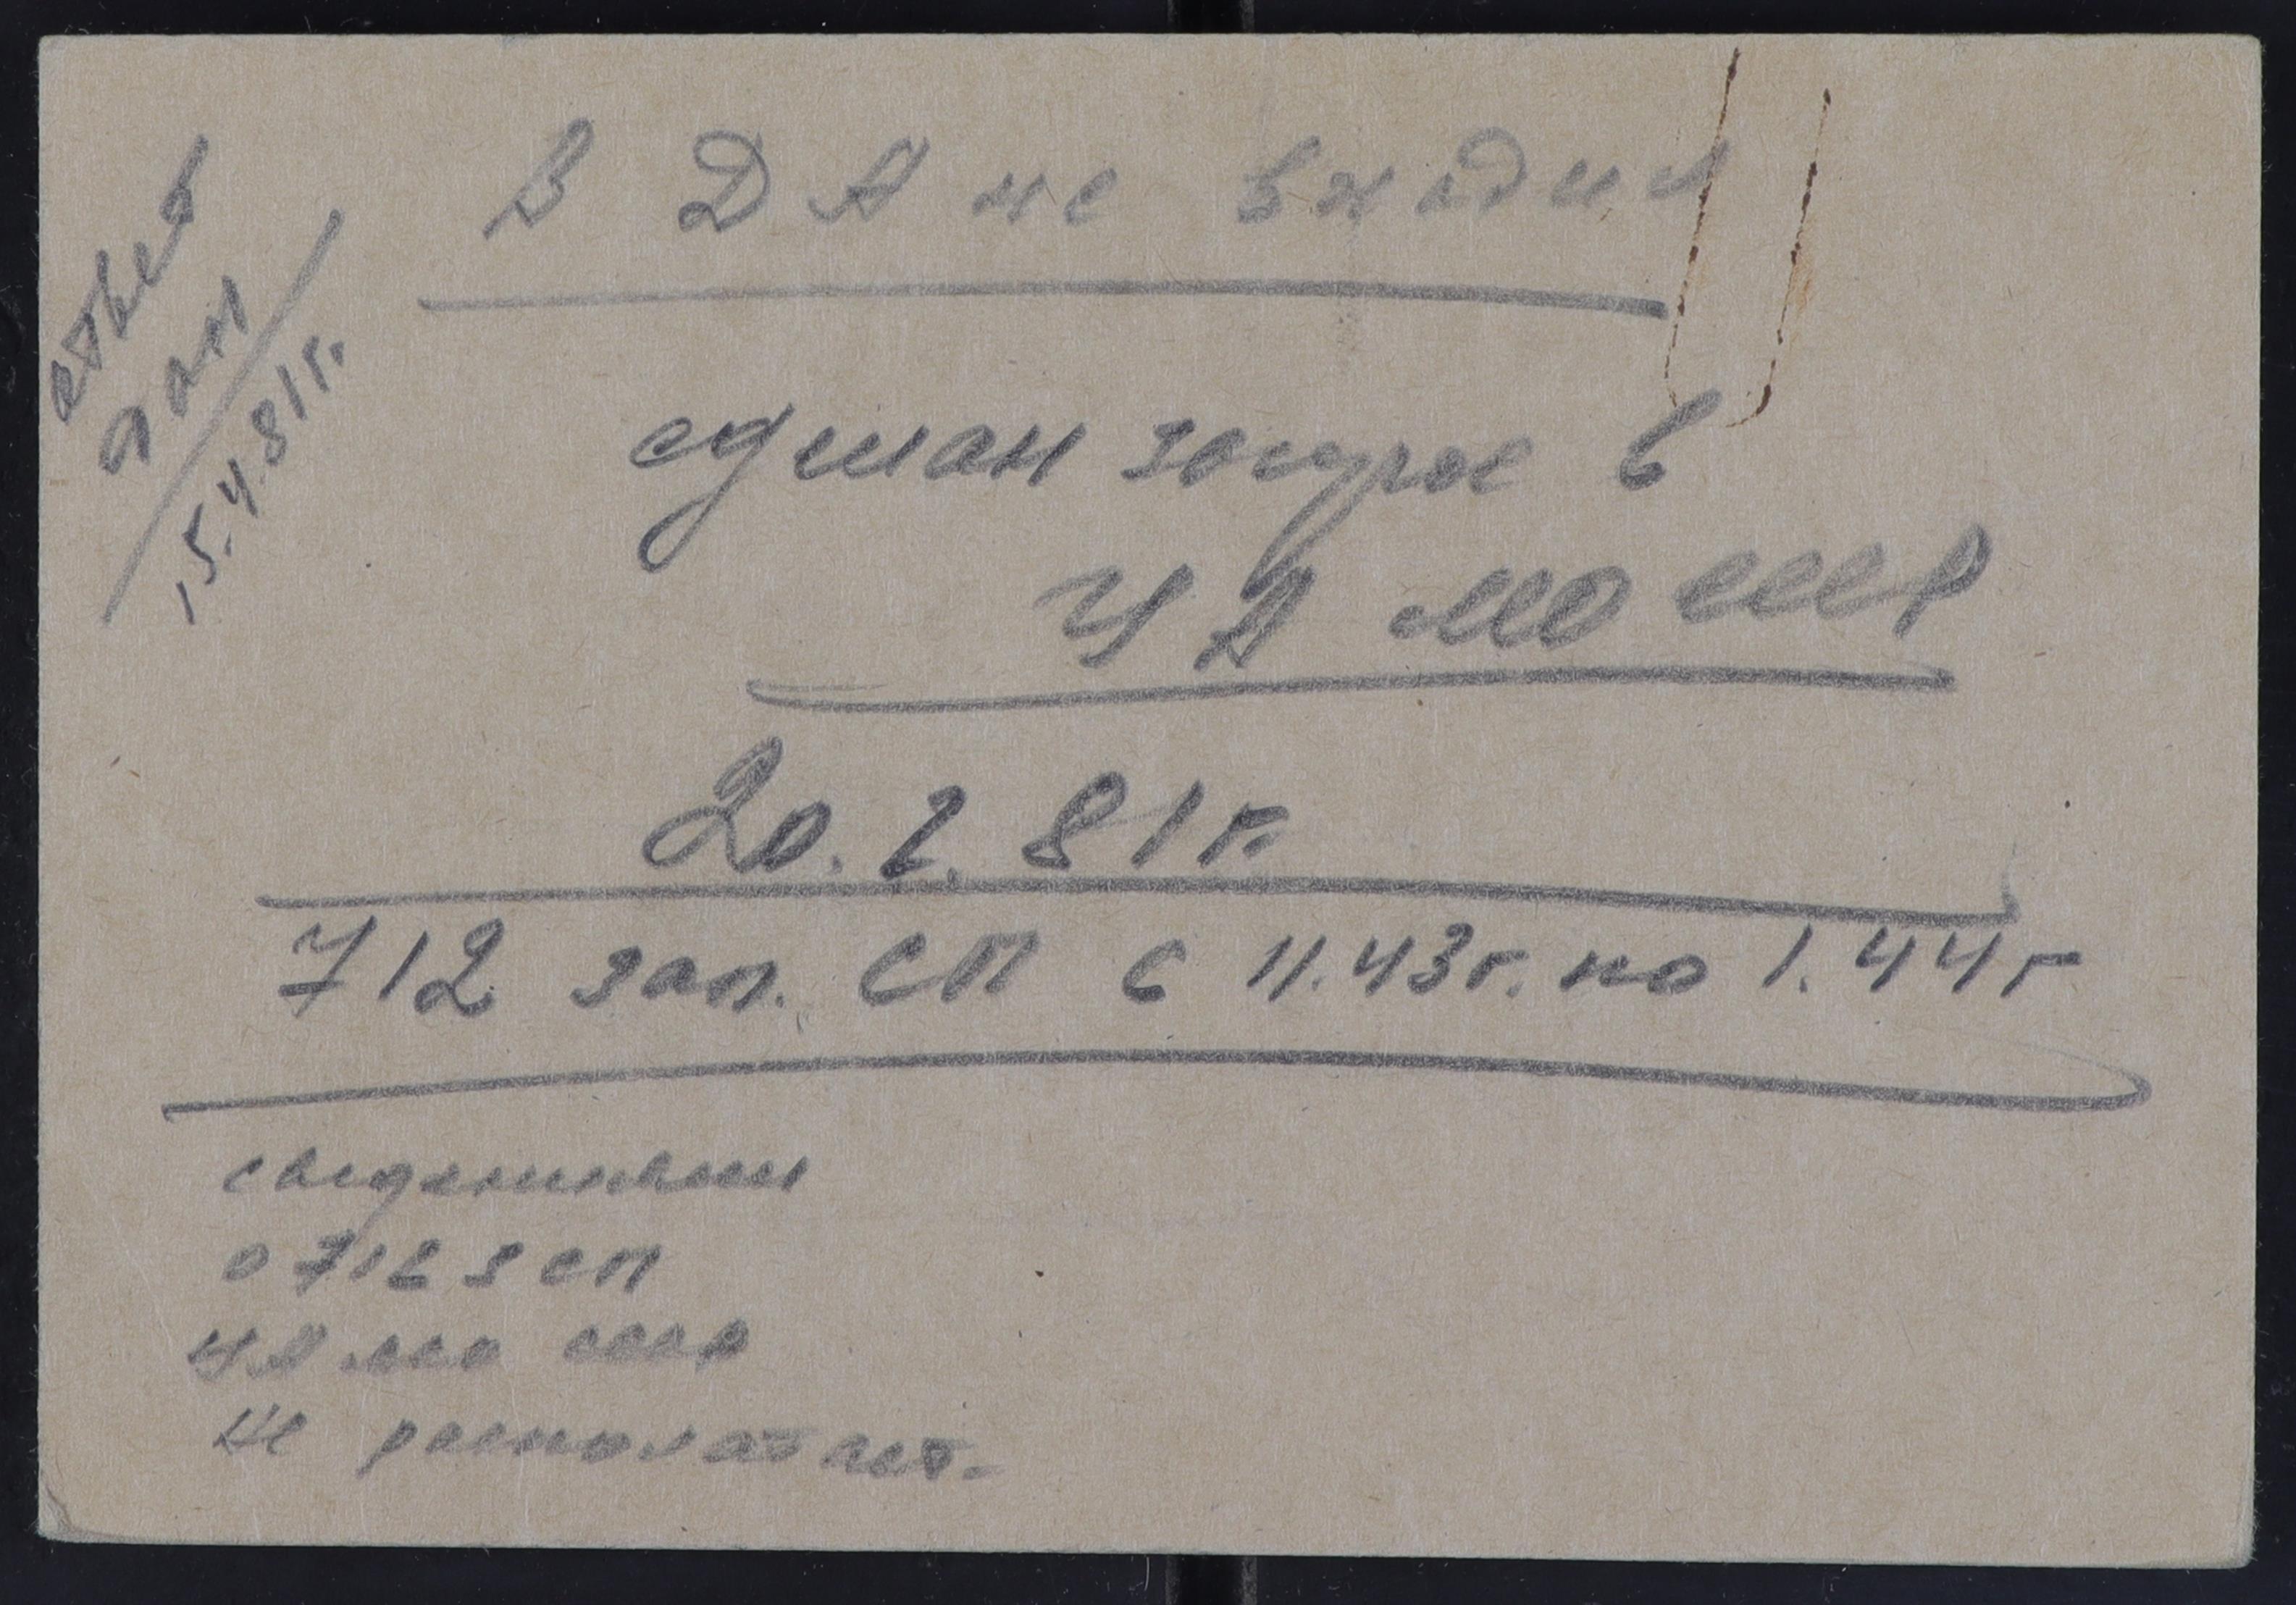 ответ
дан
15.4.81г.
В ДА не входил
сделан запрос в
ЦА МО СССР
20.2.81г.
712 зап. СП с 11.43г. по 1.44г
сведениями
о 712 ЗСП
ЦА МО СССР
не располагает.